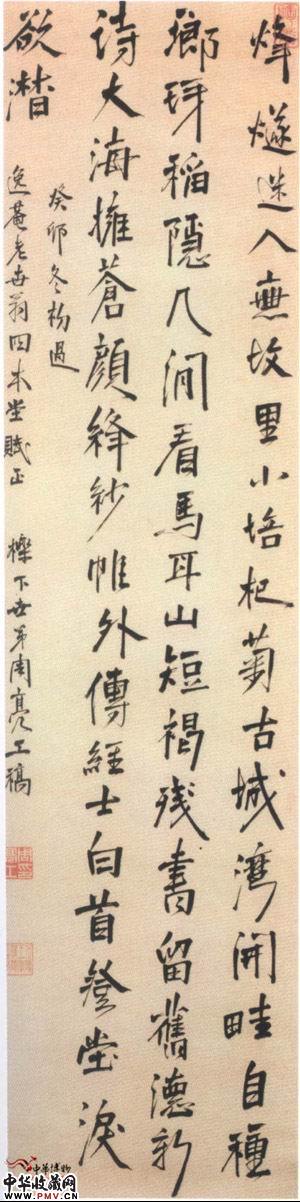 烽燧迷入蕪故里小培杞菊古城灣開畦自種
瑯玡稻隱几閒看馬耳山短褐殘書留舊德新
詩大海擁蒼顏絳紗帷外傳經士白首登堂淚
欲潸
癸卯冬杪過
逸菴老世翁四本堂賦正 櫟下世弟周亮工稿
中华博物
中华收藏网
WWW.PMV.CN